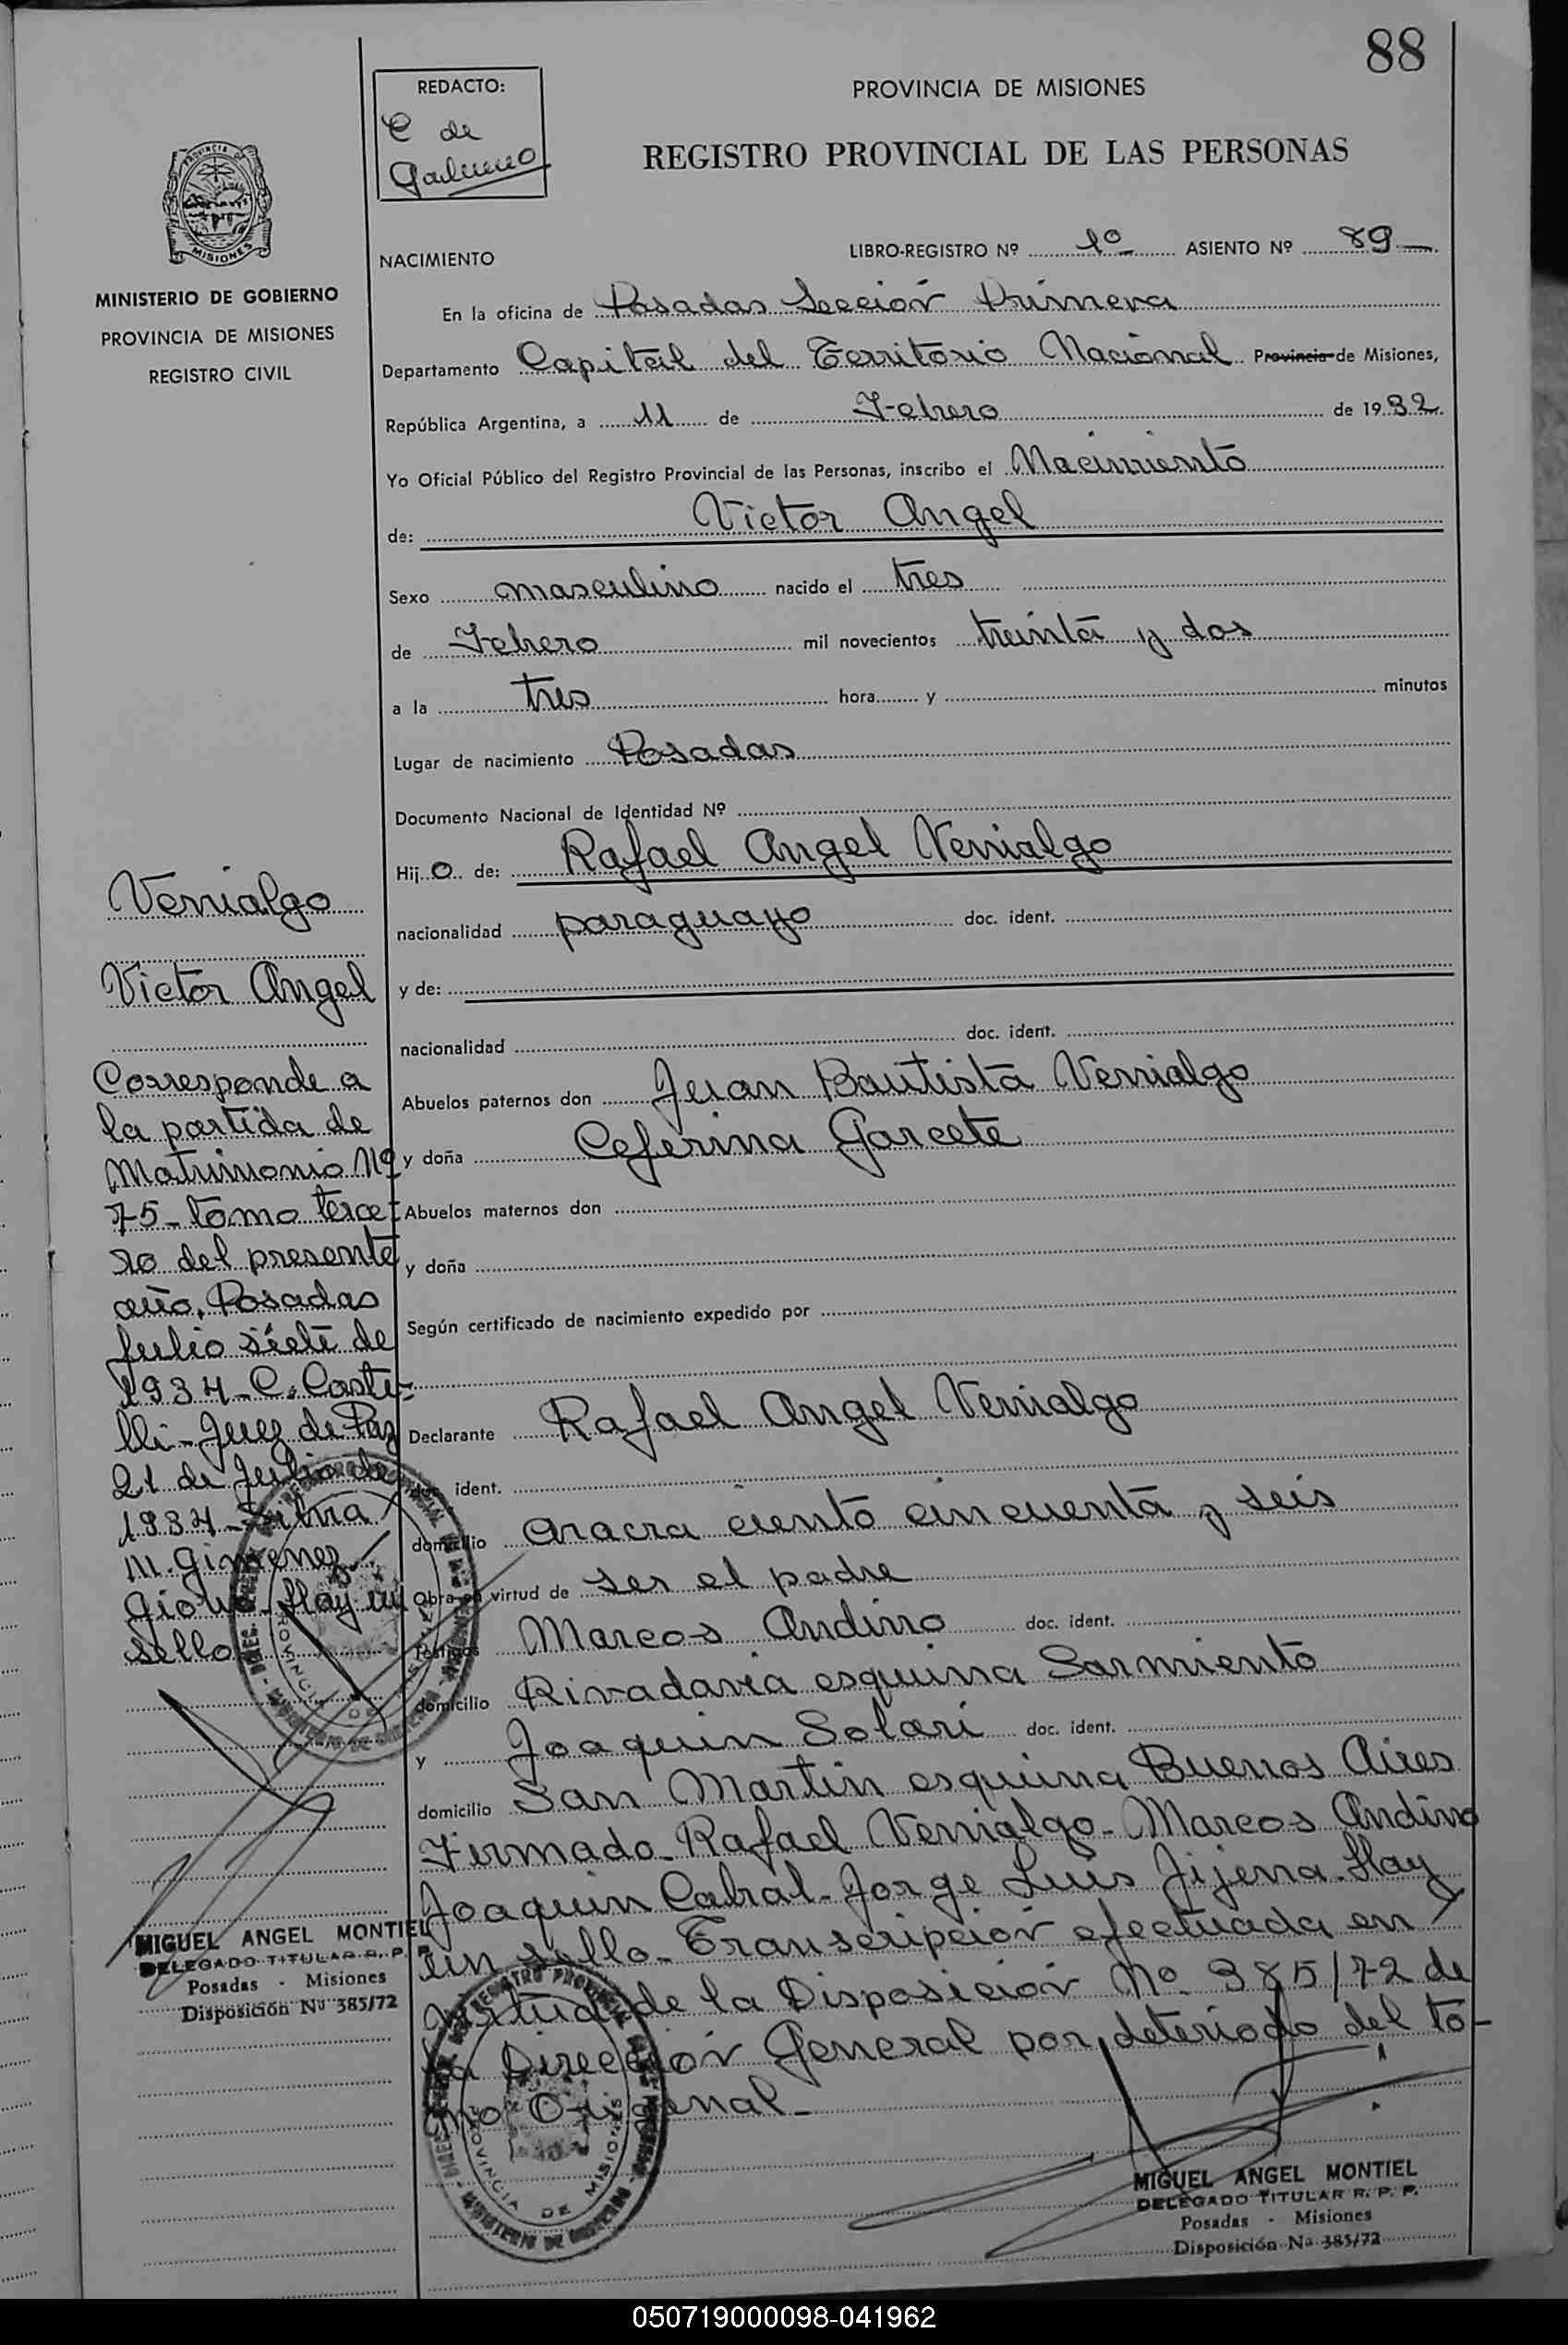 88
REDACTO:
C de
PROVINCIA DE MISIONES
REGISTRO PROVINCIAL DE LAS PERSONAS
PROVINCIA
MISIONES
MINISTERIO DE GOBIERNO
PROVINCIA DE MISIONES
REGISTRO CIVIL
NACIMIENTO LIBRO-REGISTRO Nº 1º ASIENTO Nº 89
En la oficina de Posadas Sección Primera
Departamento Capital del Territorio Nacional Provincia de Misiones,
República Argentina, a 11 de Febrero de 1932.
Yo Oficial Público del Registro Provincial de las Personas, inscribo el Nacimiento
de: Victor Angel
Sexo masculino nacido el tres
de Febrero mil novecientos treinta y dos
a la tres hora y minutos
Lugar de nacimiento Posadas
Documento Nacional de Identidad Nº
Hij o de: Rafael Angel Venialgo
nacionalidad paraguayo doc. ident.
y de:
nacionalidad doc. ident.
Abuelos paternos don Juan Bautista Venialgo
y doña Ceferina Garcete
Abuelos maternos don
y doña
Según certificado de nacimiento expedido por
Declarante Rafael Angel Venialgo
doc. ident.
domicilio ciento cincuenta y seis
Obra en virtud de ser el padre
Testigos Marcos Andino doc. ident.
domicilio Rivadavia esquina Sarmiento
y Joaquin Solari doc. ident.
domicilio San Martin esquina Buenos Aires
Firmado - Rafael Venialgo - Marcos Andino
Joaquin Cabral - Jorge Luis Jijena - Hay
un sello - Transcripción efectuada en
virtud de la Disposición Nº 385/72 de
la Dirección General por deterioro del to-
mo Original -
Venialgo
Victor Angel
Corresponde a
la partida de
Matrimonio Nº
75 - tomo terce-
ro del presente
año. Posadas
Julio siete de
1934 - C. Caste-
lli - Juez de Paz
21 de Julio de
1934 - Silvia
M. Gimenez
Hay un
sello
MIGUEL ANGEL MONTIEL
DELEGADO TITULAR R. P. P.
Posadas - Misiones
Disposición Nº 385/72
PROVINCIA DE MISIONES
MIGUEL ANGEL MONTIEL
DELEGADO TITULAR R. P. P.
Posadas - Misiones
Disposición Nº 385/72
050719000098-041962